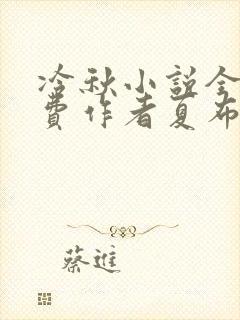 冷秋小説全
費作者夏布
蔡進